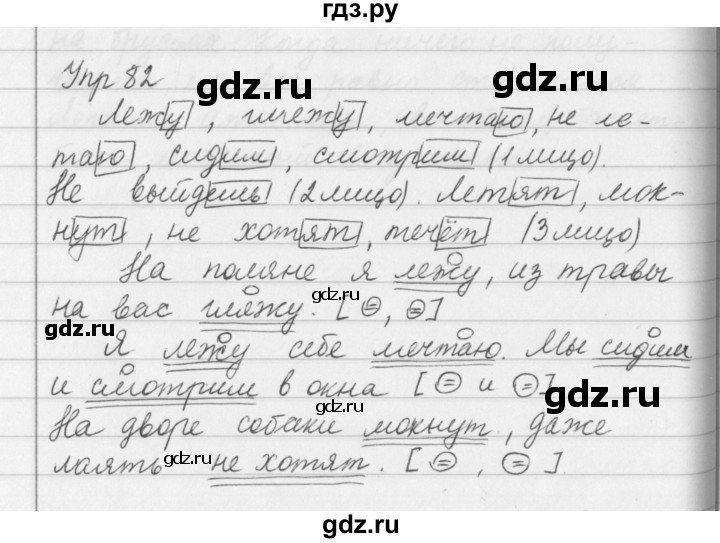 гдз.ру
Упр 82
gdz.ru
Лежу, гляжу, мечтаю, не ле-
таю, сидим, смотрим (1 лицо).
Не выйдешь (2 лицо). Летят, мок-
нут, не хотят, течёт (3 лицо)
gdz.ru
На поляне я лежу, из травы
gdz.ru
на вас гляжу. [=, =]
gdz.ru
Я лежу себе мечтаю. Мы сидим
и смотрим в окна [= и =]
gdz.ru
gdz.ru
На дворе собаки мокнут, даже
лаять не хотят. [=, =].
gdz.ru
gdz.ru
gdz.ru